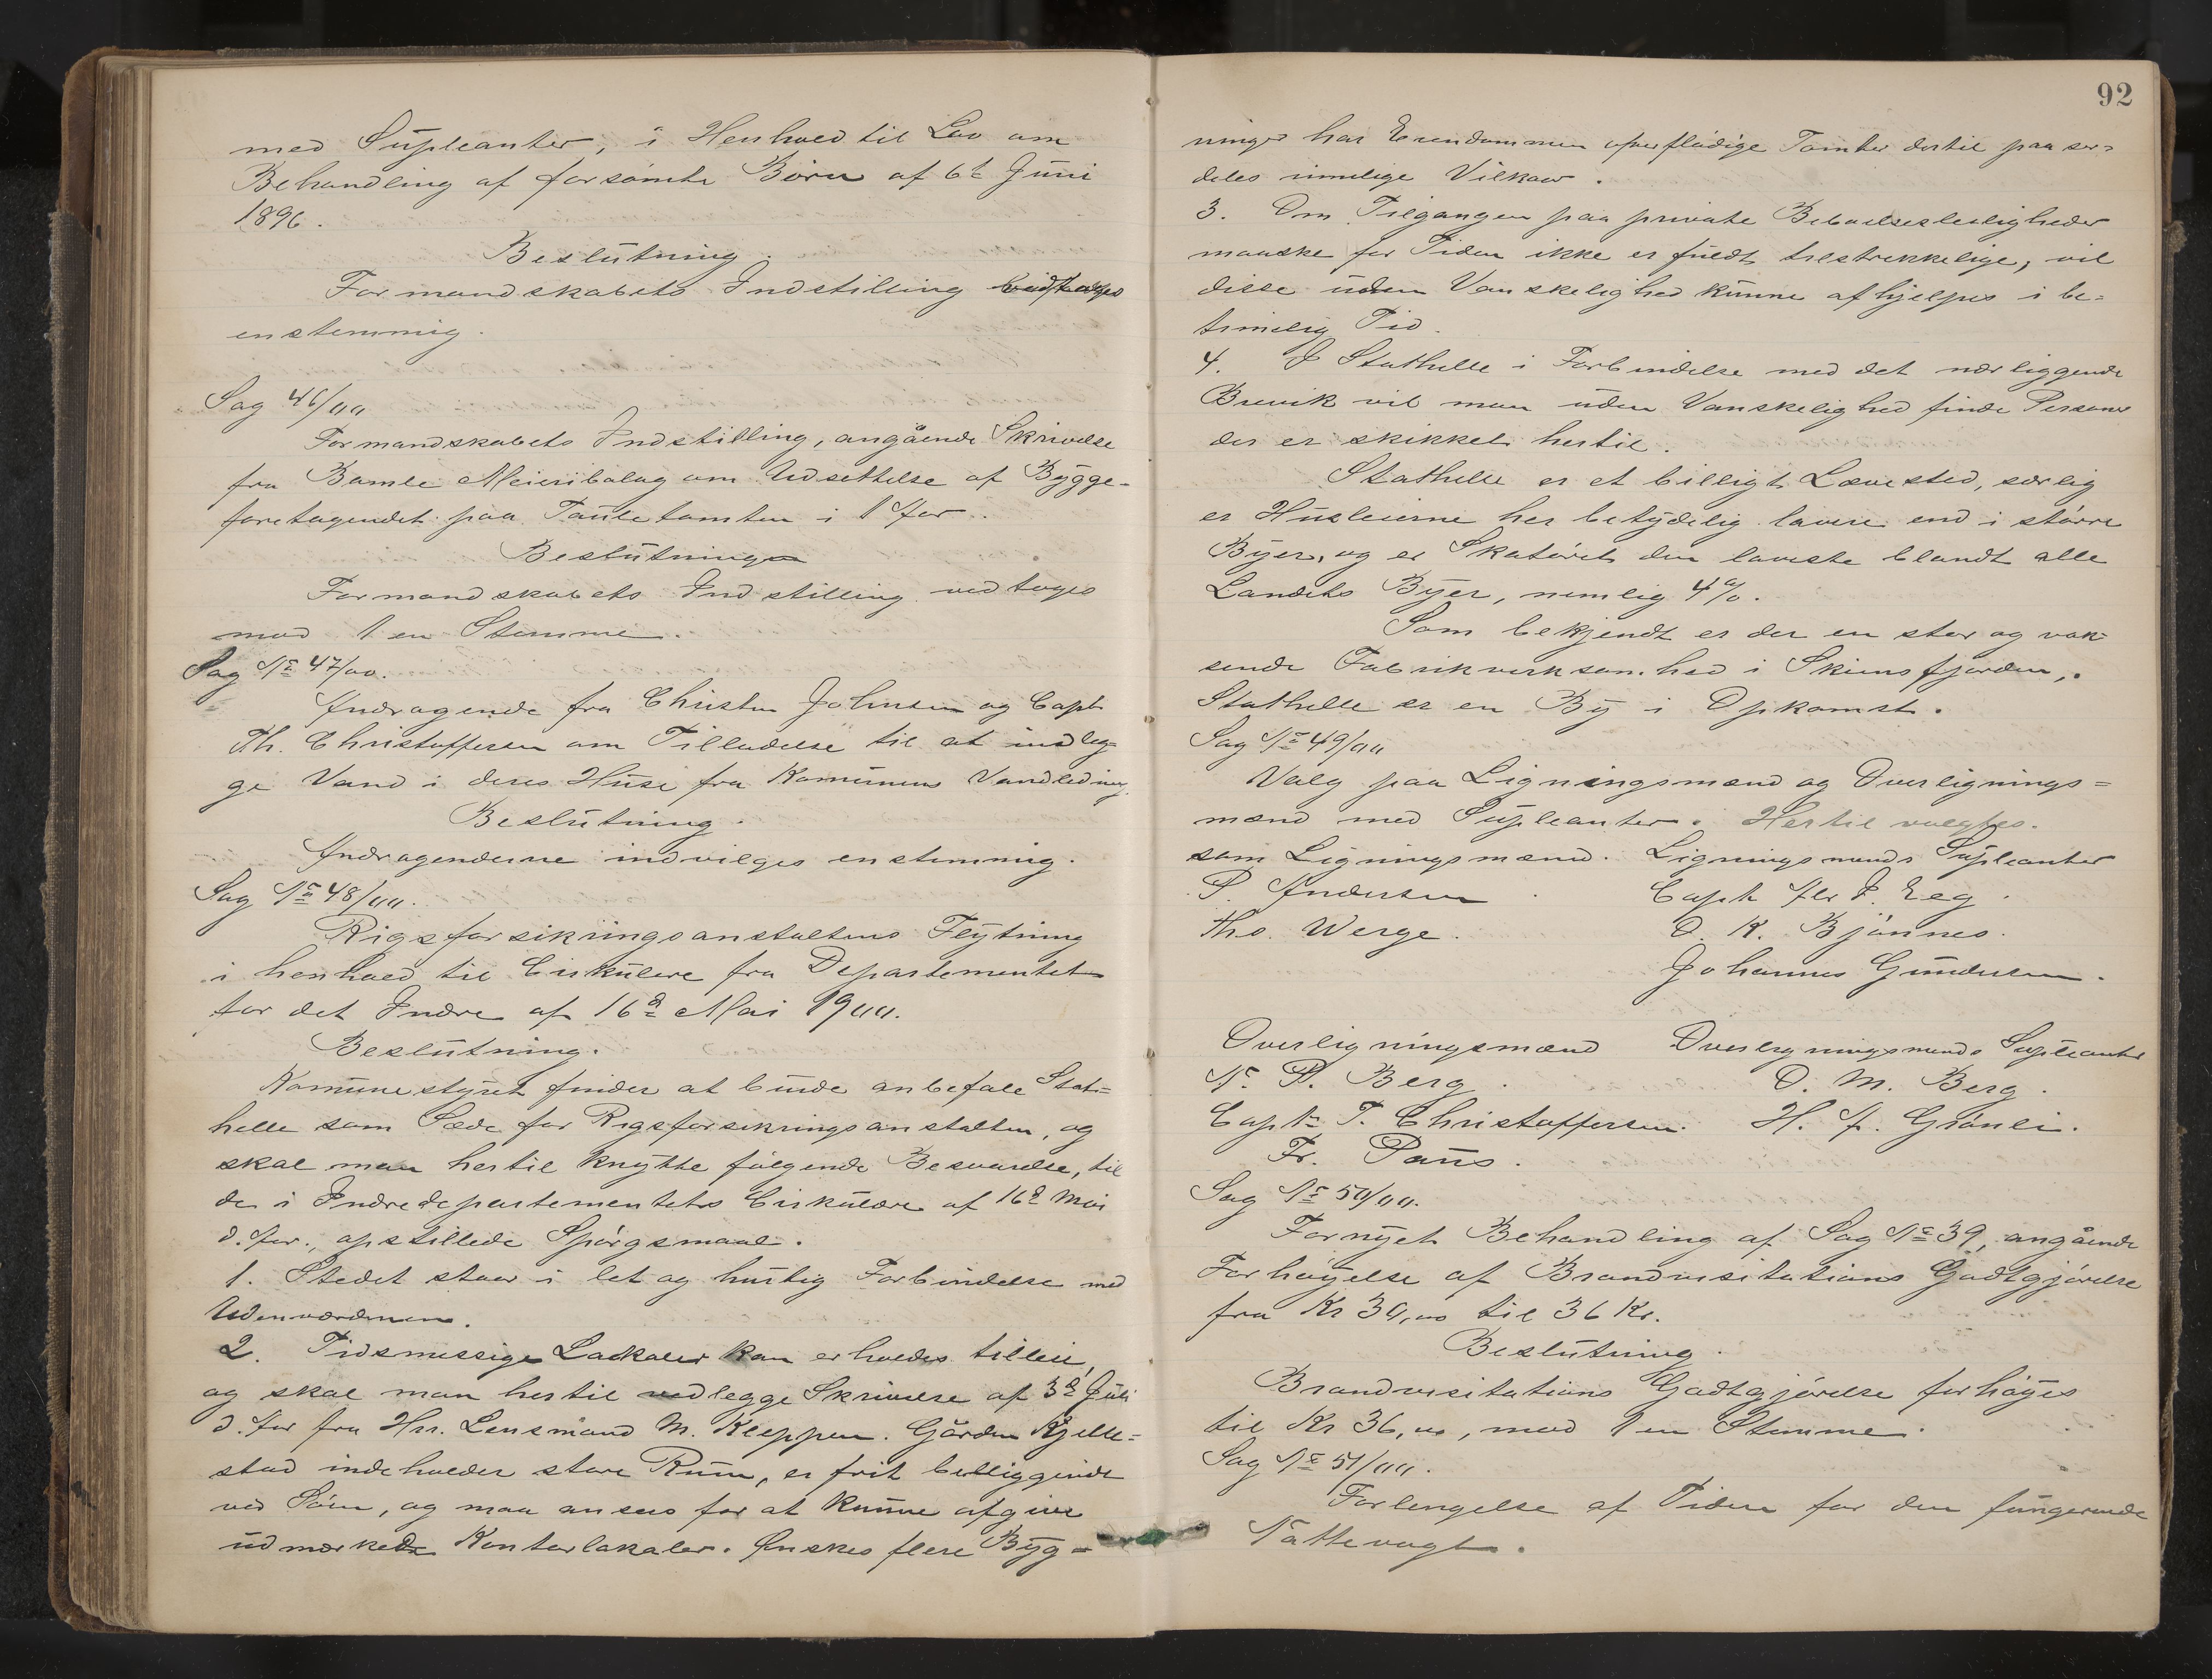 med Supleanter, i Henhold til Lov om
Behandling af forsömte Börn af 6te Juni
1896.
Beslutning.
Formandskabets Indstilling vedtoges
enstemmig.
Sag 46/00
Formandskabets Indstilling, angående Skrivelse
fra Bamle Meieribolag om Udsettelse af Bygge-
foretagendet paa Tautetomten i 1 Aar.
Beslutning
Formandskabets Indstilling vedtoges
mod 1 en Stemme.
Sag No 47/00.
Andragende fra Christen Johnsen og Capt.
Th. Christoffersen om Tilladelse til at indleg-
ge Vand i deres Huse fra Komunens Vandledning.
Beslutning.
Andragenderne indvilges enstemmig.
Sag No 48/00.
Rigsforsikringsanstaltens Flytning
i henhold til Cirkulere fra Departementet
for det Indre af 16d Mai 1900.
Beslutning.
Komunestyret finder at burde anbefale Stat-
helle som Sæde for Rigsforsikringsanstalten, og
skal man hertil knytte fölgende Besvarelse, til
de i Indredepartementets Cirkulære af 16d Mai
d. Aar., opstillede Spörgsmaal.
1. Stedet staar i let og hurtig Forbindelse med
Udenverdenen.
2. Tidsmessige Lockaler kan erholdes tilleie,
og skal man hertil vedlegge Skrivelse af 3d Juli
d. Aar fra Hrr. Lensmand M. Kleppen. Gården Kjelle-
stad indeholder store Rum, er frit beliggende
ved Söen, og maa ansees for at kunne afgive
udmærkede Kontorlokaler. Ønskes flere Byg-
92
ninger har Eiendommen overflödige Tomter dertil paa sær-
deles rimelige Vilkaar.
3. Om Tilgangen paa private Beboelsesleiligheder
maaske for Tiden ikke er fuldt tilstrekkelige, vil
disse uden Vanskelighed kunne afhjelpes i be-
timelig Tid.
4. I Stathelle i Forbindelse med det nærliggende
Brevik vil man uden Vanskelighed finde Personer
der er skikket hertil.
Stathelle er et billigt Levested, særlig
er Husleierne her betydelig lavere end i större
Byer, og er Skatöret den laveste blandt alle
Landets Byer, nemlig 4%.
Som bekjendt er der en stor og vok-
sende Fabrikverksomhed i Skiensfjorden,.
Stathelle er en By i Opkomst.
Sag No 49/00
Valg paa Ligningsmænd og Overlignings=
mænd med Supleanter. Hertil valgtes.
som Ligningsmænd. Ligningsmænds Supleanter
P. Andersen . Capt. Alr P. Eeg.
Ths. Werge. O. K. Bjönnes.
Johannes Gundersen.
Overligningsmænd Overligningsmænds Supleanter
N. P. Berg. O. M. Berg.
Capt. T. Christoffersen. H. A. Grönli.
Fr. Paus.
Sag No 50/00.
Fornyet Behandling af Sag No 39, angående
Forhöyelse af Brandvisitations Godtgjörelse
fra Kr 30,00 til 36 Kr.
Beslutning.
Brandvisitations Godtgjörelse forhöyes
til Kr 36,00, mod 1 en Stemme.
Sag No 51/00.
Forlengelse af Tiden for den fungerende
Nattevagt.